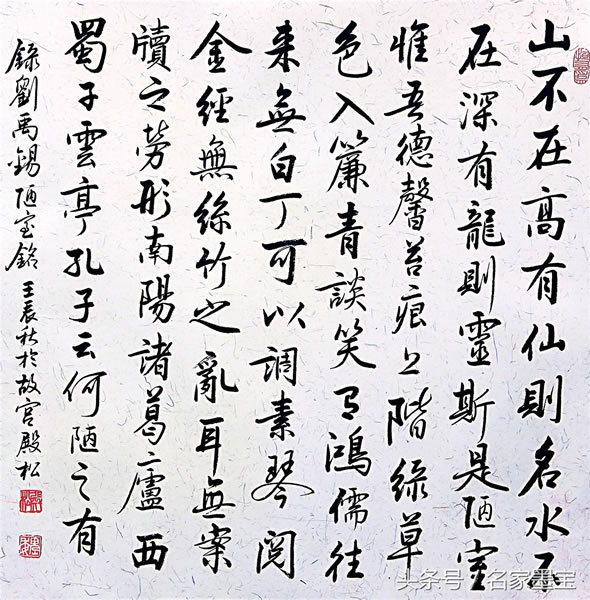 山不在高有仙則名水不
在深有龍則靈斯是陋室
惟吾德馨苔痕上階綠草
色入簾青談笑有鴻儒往
来無白丁可以調素琴閱
金經無絲竹之亂耳無案
牘之勞形南陽諸葛廬西
蜀子雲亭孔子云何陋之有
錄劉禹錫陋室銘 壬辰秋於故宮殿松
头条号 / 名家墨宝